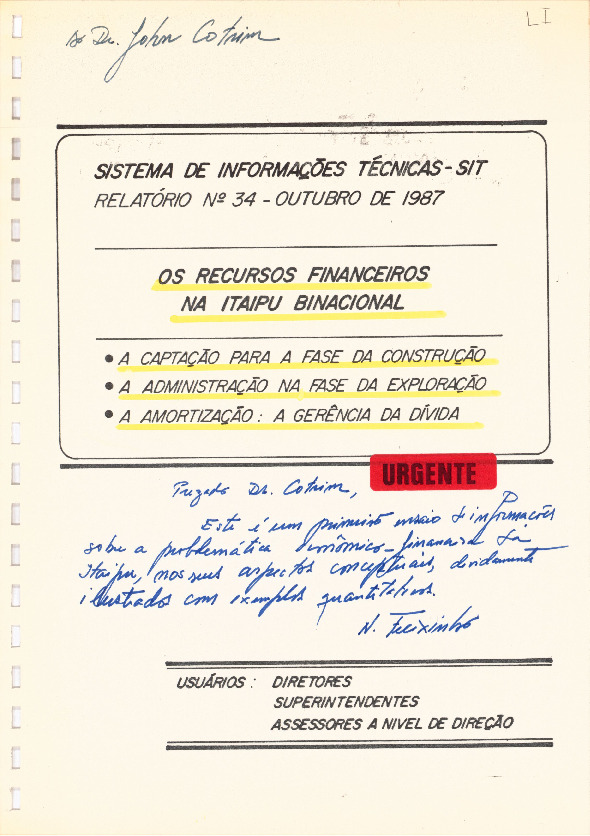 Ao Dr. John Cotrim
LI
SISTEMA DE INFORMAÇÕES TÉCNICAS - SIT
RELATÓRIO Nº 34 - OUTUBRO DE 1987
OS RECURSOS FINANCEIROS
NA ITAIPU BINACIONAL
• A CAPTAÇÃO PARA A FASE DA CONSTRUÇÃO
• A ADMINISTRAÇÃO NA FASE DA EXPLORAÇÃO
• A AMORTIZAÇÃO : A GERÊNCIA DA DÍVIDA
URGENTE
Prezado Dr. Cotrim,
Este é um primeiro ensaio de informações
sobre a problemática econômico-financeira da
Itaipu, nos seus aspectos conceptuais, devidamente
ilustrados com exemplos quantitativos.
N. Feixinho
USUÁRIOS : DIRETORES
SUPERINTENDENTES
ASSESSORES A NIVEL DE DIREÇÃO